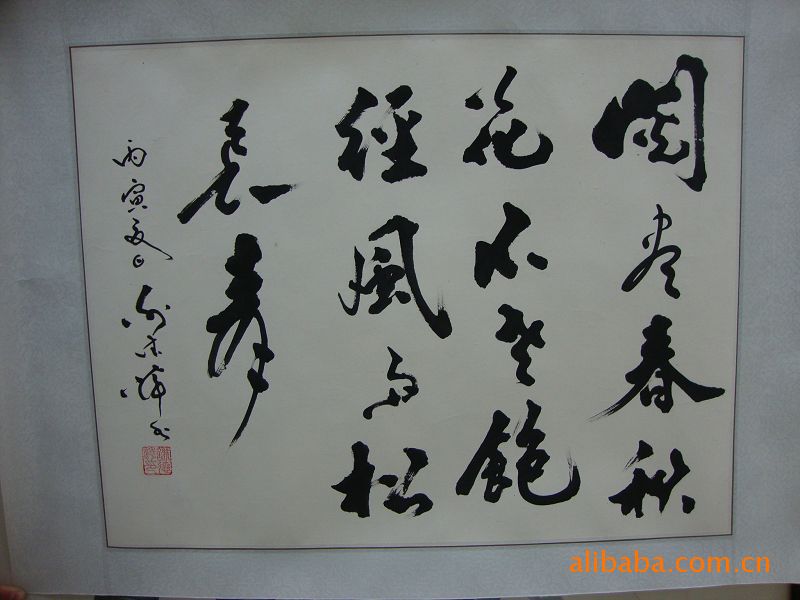 閱尽春秋
花不老飽
經風雨松
長壽
丙寅夏日
alibaba.com.cn